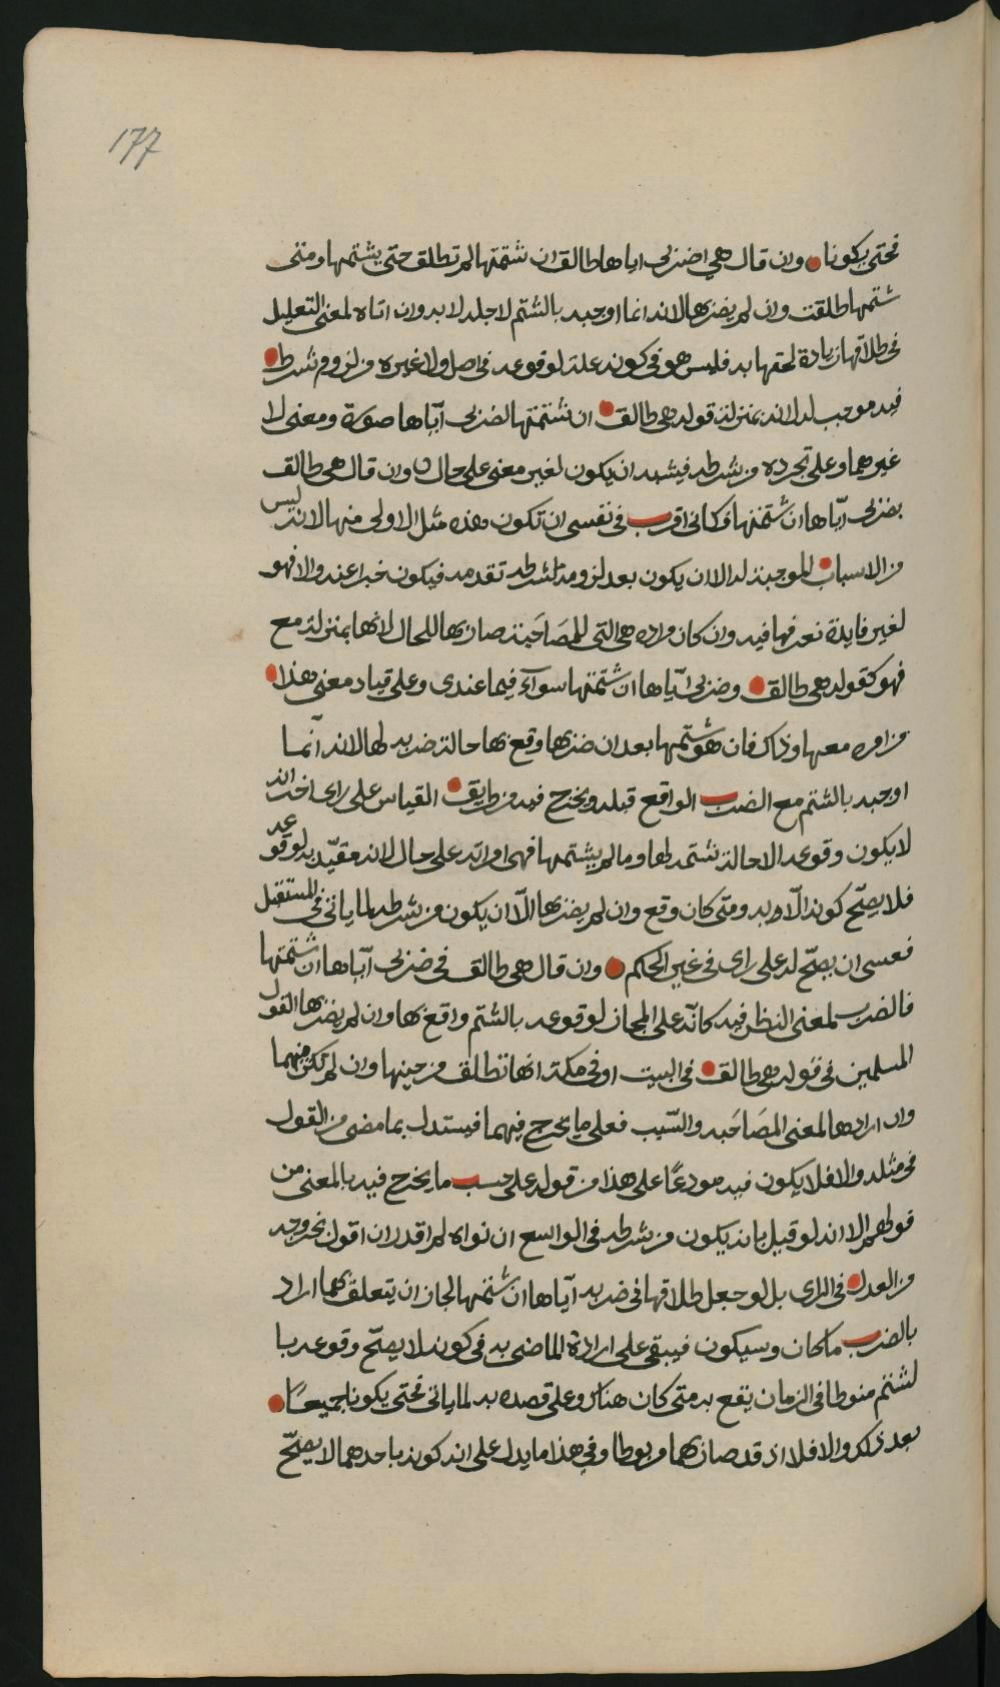 177
فحتى يكونا وان قال هي اضربي اياها طالق ان شتمتها لم تطلق حتى يشتمها ومتى
شتمها طلقت وان لم يضربها لانه انما اوجبه بالشتم لاجله لا به وان اتاه لمعنى التعليل
في طلاقها زيادة لحقها به فليس هو في كونه علة لوقوعه في اصل ولا غيره من لزوم شرط
فيه موجب له لانه بمنزلة قوله هي طالق ان شتمتها لضربي اياها صورة ومعنى لا
غيرهما وعلى تجرده من شرطه فيشبه ان يكون لغير معنى على حال وان قال هي طالق
بضربي اياها ان شتمتها فكاني اقرب في نفسي ان تكون هذه مثل الاولى منها لانه ليس
من الاسباب الموجبة له الا ان يكون بعد لزومه لشرط تقدمه فيكون خبرا عنه والا فهو
لغير فايدة نعرفها فيه وان كان مراده هي التي للمصاحبة صار بها للحال لانها بمنزلة مع
فهو كقوله هي طالق وضربي اياها ان شتمتها سواء فيما عندي وعلى قياد معنى هذا
من امره معها وذاك فان هو شتمها بعد ان ضربها وقع بها حالة ضربه لها لانه انما
اوجبه بالشتم مع الضرب الواقع قبله ويخرج فيه من طريق القياس على راى اخر انه
لا يكون وقوعه الا حالة شتمه لها وما لم يشتمها فهي امراته على حال لانه مقيد به لوقوعه
فلا يصح كونه الا به ومتى كان وقع وان لم يضربها الا ان يكون من شرطه لما ياتي في المستقبل
فعسى ان يصح له على راى في غير الحكم وان قال هي طالق في ضربي اياها ان شتمتها
فالضرب لمعنى النظر فيه كانه على المجاز لوقوعه بالشتم واقع بها وان لم يضربها القول
المسلمين في قوله هي طالق في البيت او في مكة انها تطلق من حينها وان لم تكن منهما
وان ارادها لمعنى المصاحبه والسبب فعلى ما يخرج فيهما فيستدل بما مضى من القول
في مثله والا فلا يكون فيه مودعًا على هذا من قوله على حسب ما يخرج فيه بالمعنى من
قولهم الا انه لو قيل بانه يكون من شرطه في الواسع ان نواه لم اقدر ان اقول بخروجه
من العدل في الراى بل لو جعل طلاقها في ضربه اياها ان شتمها لجاز ان يتعلق بهما اراد
بالضرب ما كان وسيكون فيبقى على ارادة الماضى به في كونه لا يصح وقوعه با
لشتم منوطا في الزمان يقع به متى كان هناك وعلى قصده به لما ياتى فحتى يكونا جميعًا
بعد ذلك والا فلا اذ قد صار بهما مربوطا وفي هذا ما يدل على انه كونه باحدهما لا يصح